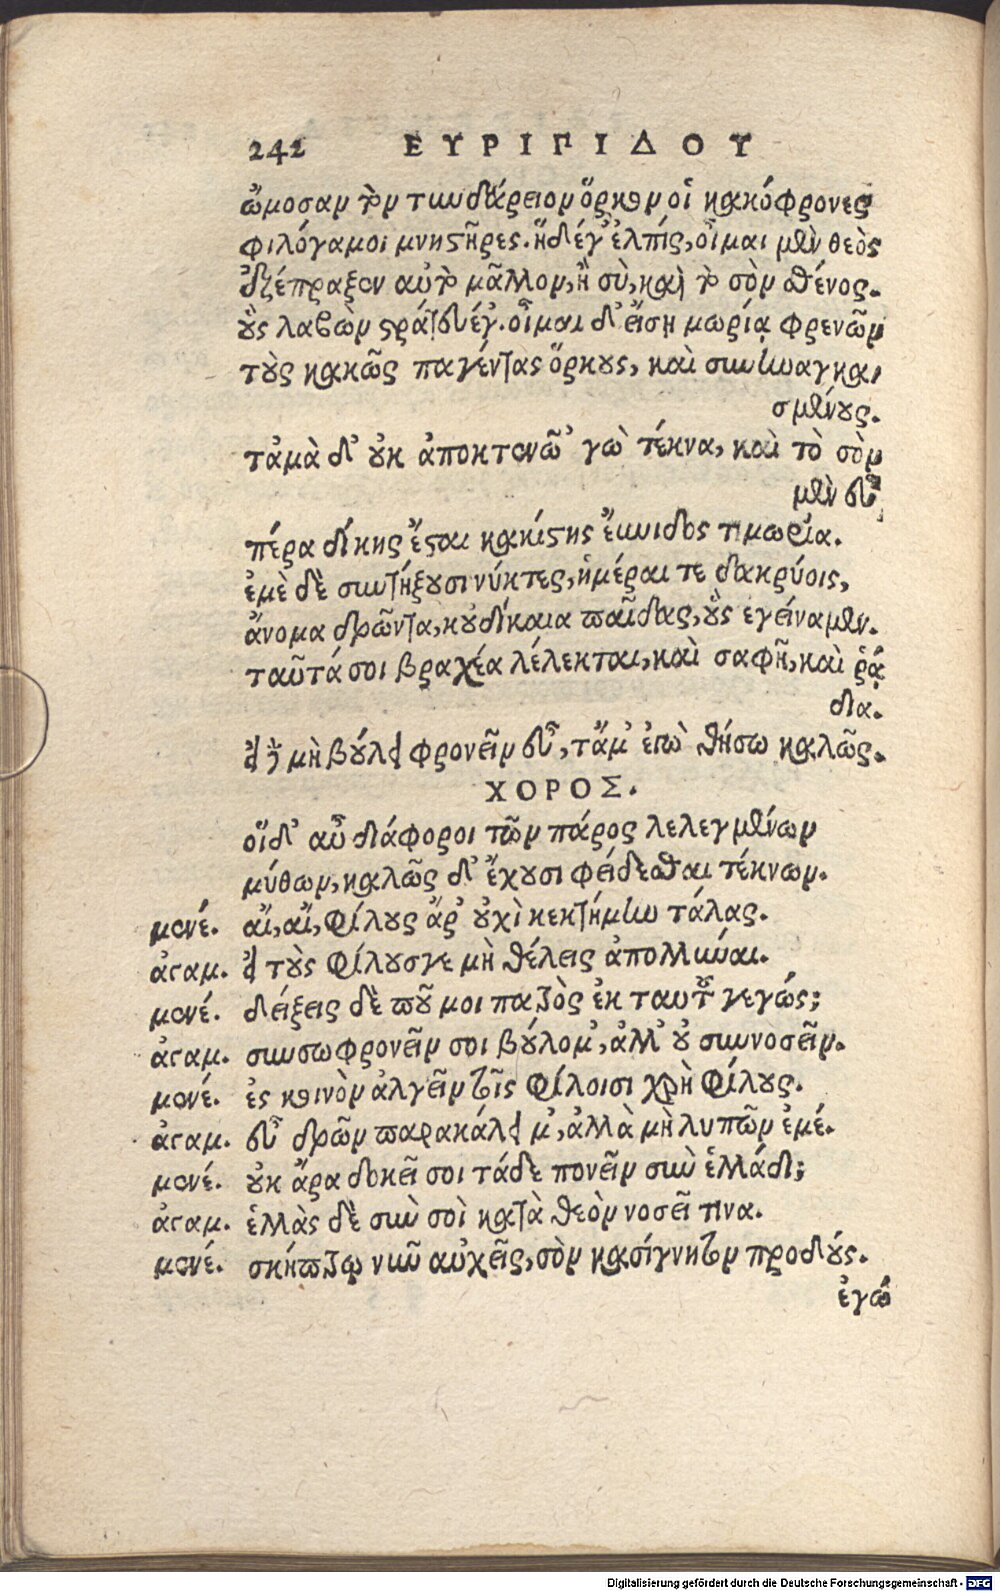 242 ΕΥΡΙΠΙΔΟΥ
ὤμοσαν τὸν τυνδάρειον ὅρκον οἱ κακόφρονες
φιλόγαμοι μνηστῆρες. ἡ δέ γ' ἐλπὶς, οἶμαι μὲν θεὸς
ἐξέπραξεν αὐτὸ μᾶλλον, ἢ σὺ, καὶ τὸ σὸν σθένος.
οὓς λαβὼν στράτευέγ. οἶμαι δ' εἴση μωρίᾳ φρενῶν
τοὺς κακῶς παγέντας ὅρκους, καὶ συνηναγκα
σμένους.
τἀμὰ δ' οὐκ ἀποκτενῶ 'γὼ τέκνα, καὶ τὸ σὸν
μὲν εὖ
πέρα δίκης ἔσται κακίστης εὔνιδος τιμωρία.
ἐμὲ δὲ συντήξουσι νύκτες, ἡμέραι τε δακρύοις,
ἄνομα δρῶντα, κοὐ δίκαια παῖδας, οὓς εγείναμεν.
ταῦτά σοι βραχέα λέλεκται, καὶ σαφῆ, καὶ ῥᾴ
δια.
εἰ δὲ μὴ βούλει φρονεῖν εὖ, τἄμ' ἐγὼ θήσω καλῶς.
ΧΟΡΟΣ.
οἵδ' αὖ διάφοροι τῶν πάρος λελεγμένων
μύθων, καλῶς δ' ἔχουσι φείδεσθαι τέκνων.
μενέ. αἴ, αἴ, φίλους ἄρ' οὐχὶ κεκτήμην τάλας.
ἀγαμ. εἰ τοὺς φίλουσγε μὴ θέλεις ἀπολλύναι.
μενέ. δείξεις δὲ ποῦ μοι πατρὸς ἐκ ταυτοῦ γεγώς;
ἀγαμ. συνσωφρονεῖν σοι βούλομ', ἀλλ' οὐ συννοσεῖν.
μενέ. ἐς κοινὸν ἀλγεῖν τοῖς φίλοισι χρὴ φίλους.
ἀγαμ. εὖ δρῶν παρακάλει μ', ἀλλὰ μὴ λυπῶν ἐμέ.
μενέ. οὐκ ἄρα δοκεῖ σοι τάδε πονεῖν σὺν ἑλλάδι;
ἀγαμ. ἑλλὰς δὲ σὺν σοὶ κατὰ θεὸν νοσεῖ τινα.
μενέ. σκήπτρῳ νῦν αὐχεῖς, σὸν κασίγνητον προδούς.
ἐγὼ
Digitalisierung gefördert durch die Deutsche Forschungsgemeinschaft - DFG